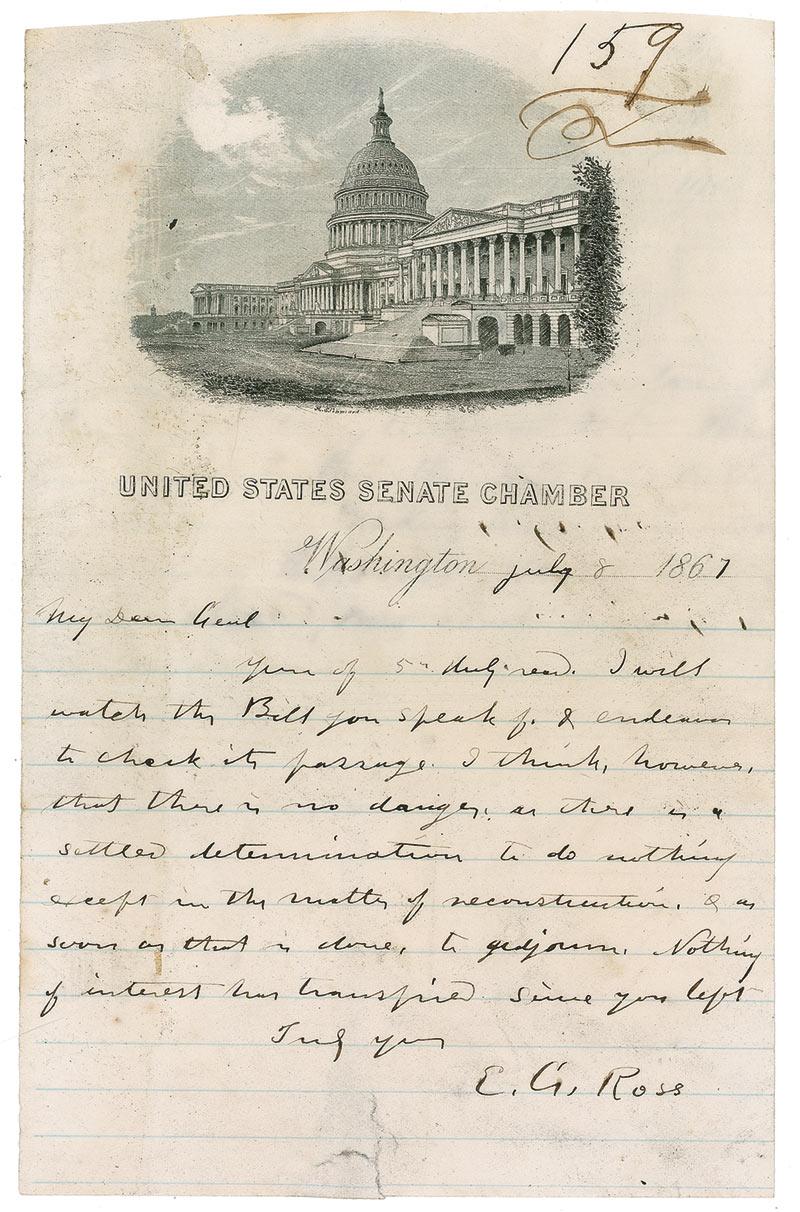 159
UNITED STATES SENATE CHAMBER
Washington July 8 1867
My Dear Genl
Yours of 5th July recd. I will
watch the Bill you speak of. & endeavor
to check its passage. I think, however,
that there is no danger, as there is a
settled determination to do nothing
except in the matter of reconstruction, & as
soon as that is done, to adjourn. Nothing
of interest has transpired since you left
Truly yours
E. G. Ross